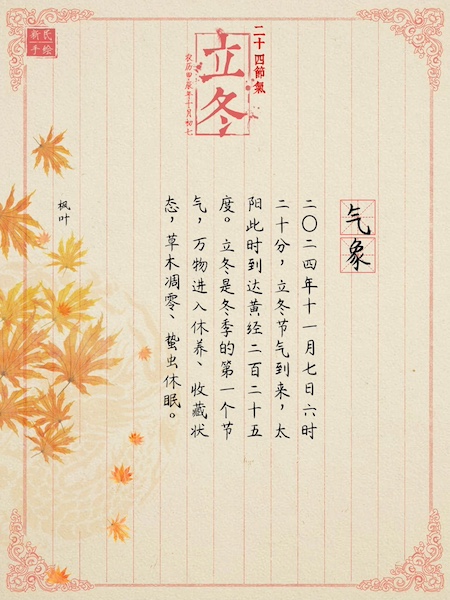 二十四節氣
立冬
农历甲辰年十月初七
手绘
气象
二〇二四年十一月七日六时
二十分，立冬节气到来，太
阳此时到达黄经二百二十五
度。立冬是冬季的第一个节
气，万物进入休养、收藏状
态，草木凋零、蛰虫休眠。
枫叶